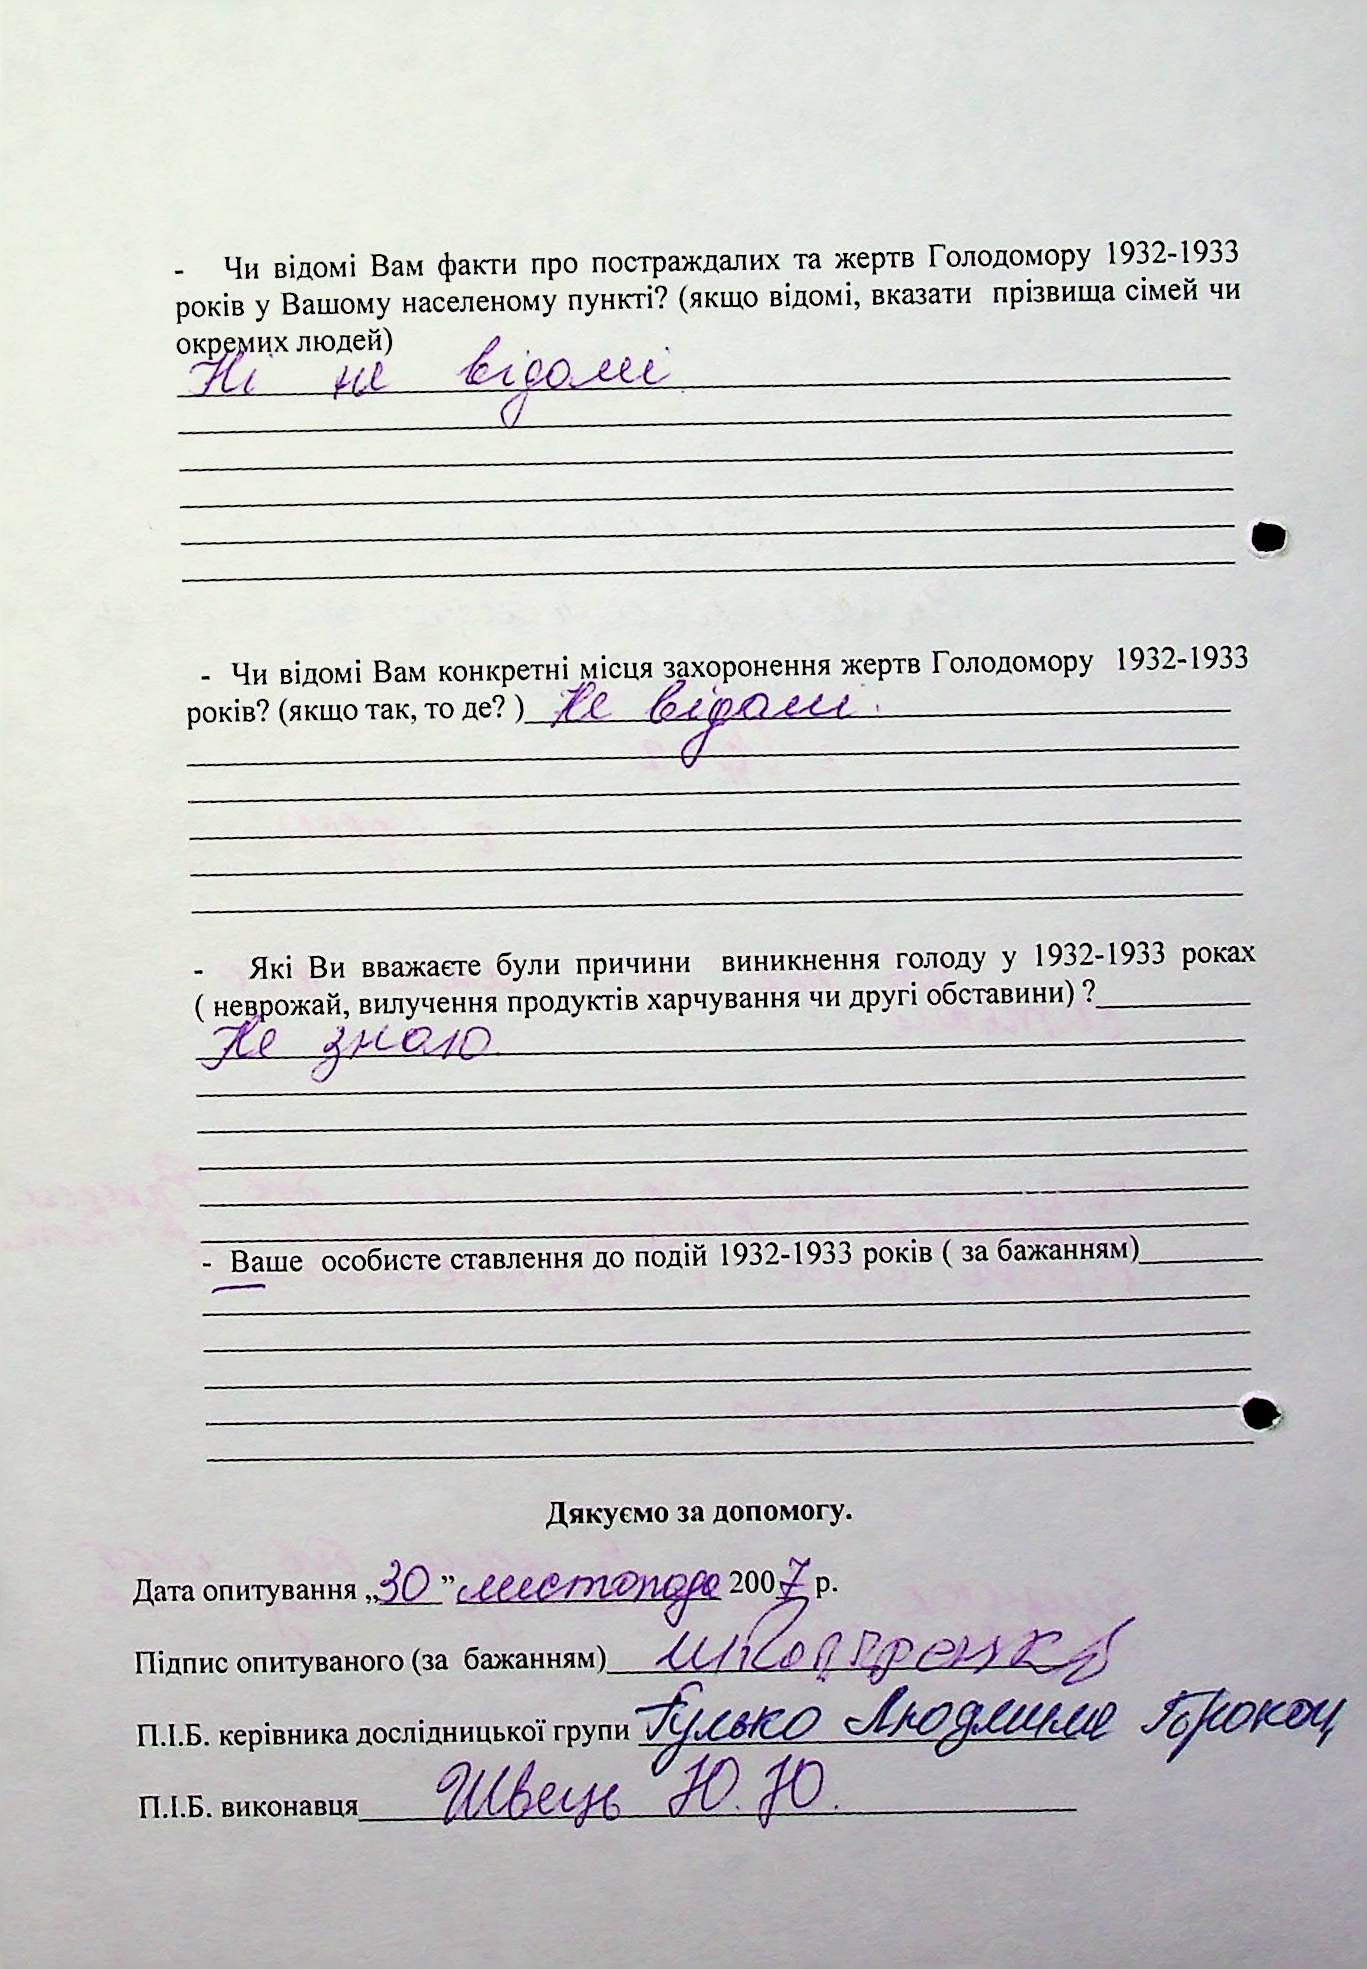 - Чи відомі Вам факти про постраждалих та жертв Голодомору 1932-1933
років у Вашому населеному пункті? (якщо відомі, вказати прізвища сімей чи
окремих людей)
Ні не відомі.
- Чи відомі Вам конкретні місця захоронення жертв Голодомору 1932-1933
років? (якщо так, то де? ) Не відомі.
- Які Ви вважаєте були причини виникнення голоду у 1932-1933 роках
( неврожай, вилучення продуктів харчування чи другі обставини) ?
Не знаю.
- Ваше особисте ставлення до подій 1932-1933 років ( за бажанням)
Дякуємо за допомогу.
Дата опитування „30” листопада 2007 р.
Підпис опитуваного (за бажанням)
П.І.Б. керівника дослідницької групи Гулько Людмила
П.І.Б. виконавця Швець Ю. Ю.